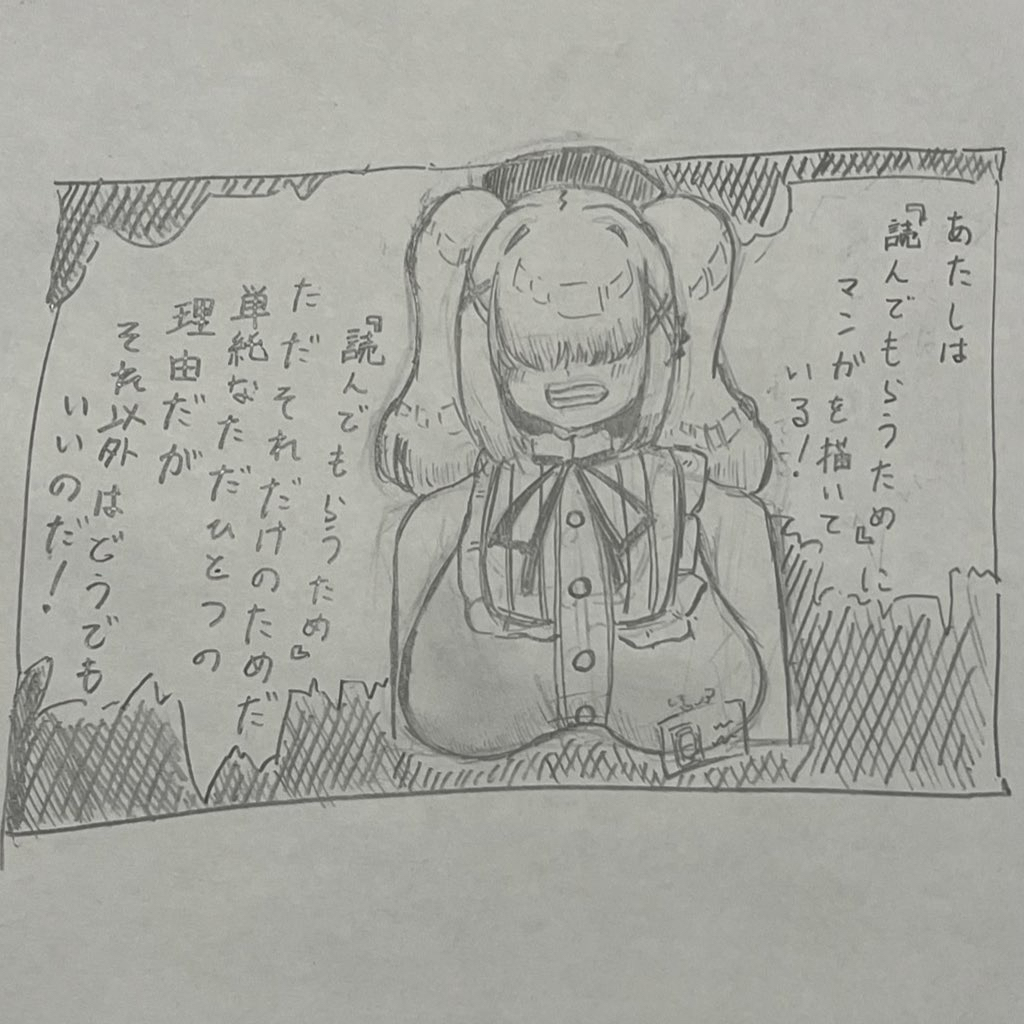 あたしは
『読んでもらうため』に
マンガを描いて
いる！
『読んでもらうため』
ただそれだけのためだ
単純なただひとつの
理由だが
それ以外はどうでも
いいのだ！